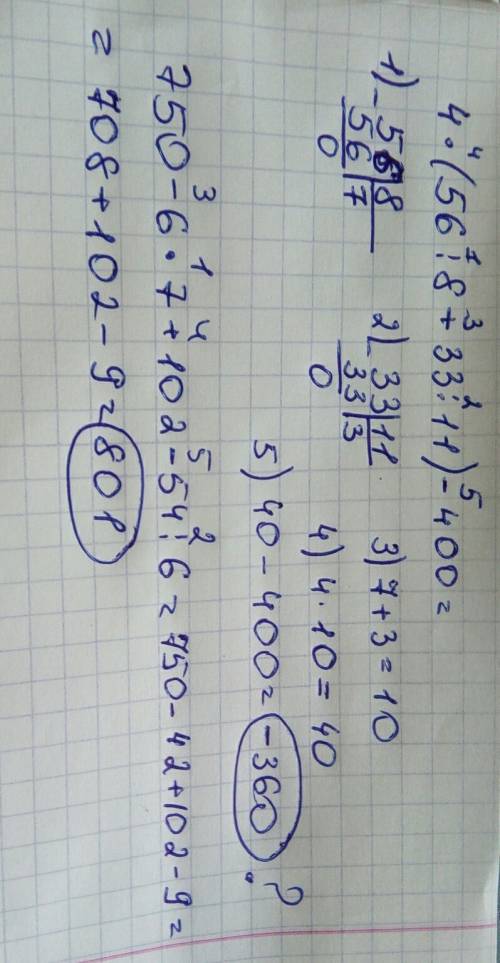 4 · (56 : 8 + 33 : 11) - 400 =
4 1 3 2 5
1) -56|8
56|7
0
2) -33|11
33|3
0
3) 7 + 3 = 10
4) 4 · 10 = 40
5) 40 - 400 = -360 ?
3 1 4 5 2
750 - 6 · 7 + 102 - 54 : 6 = 750 - 42 + 102 - 9 =
= 708 + 102 - 9 = 801